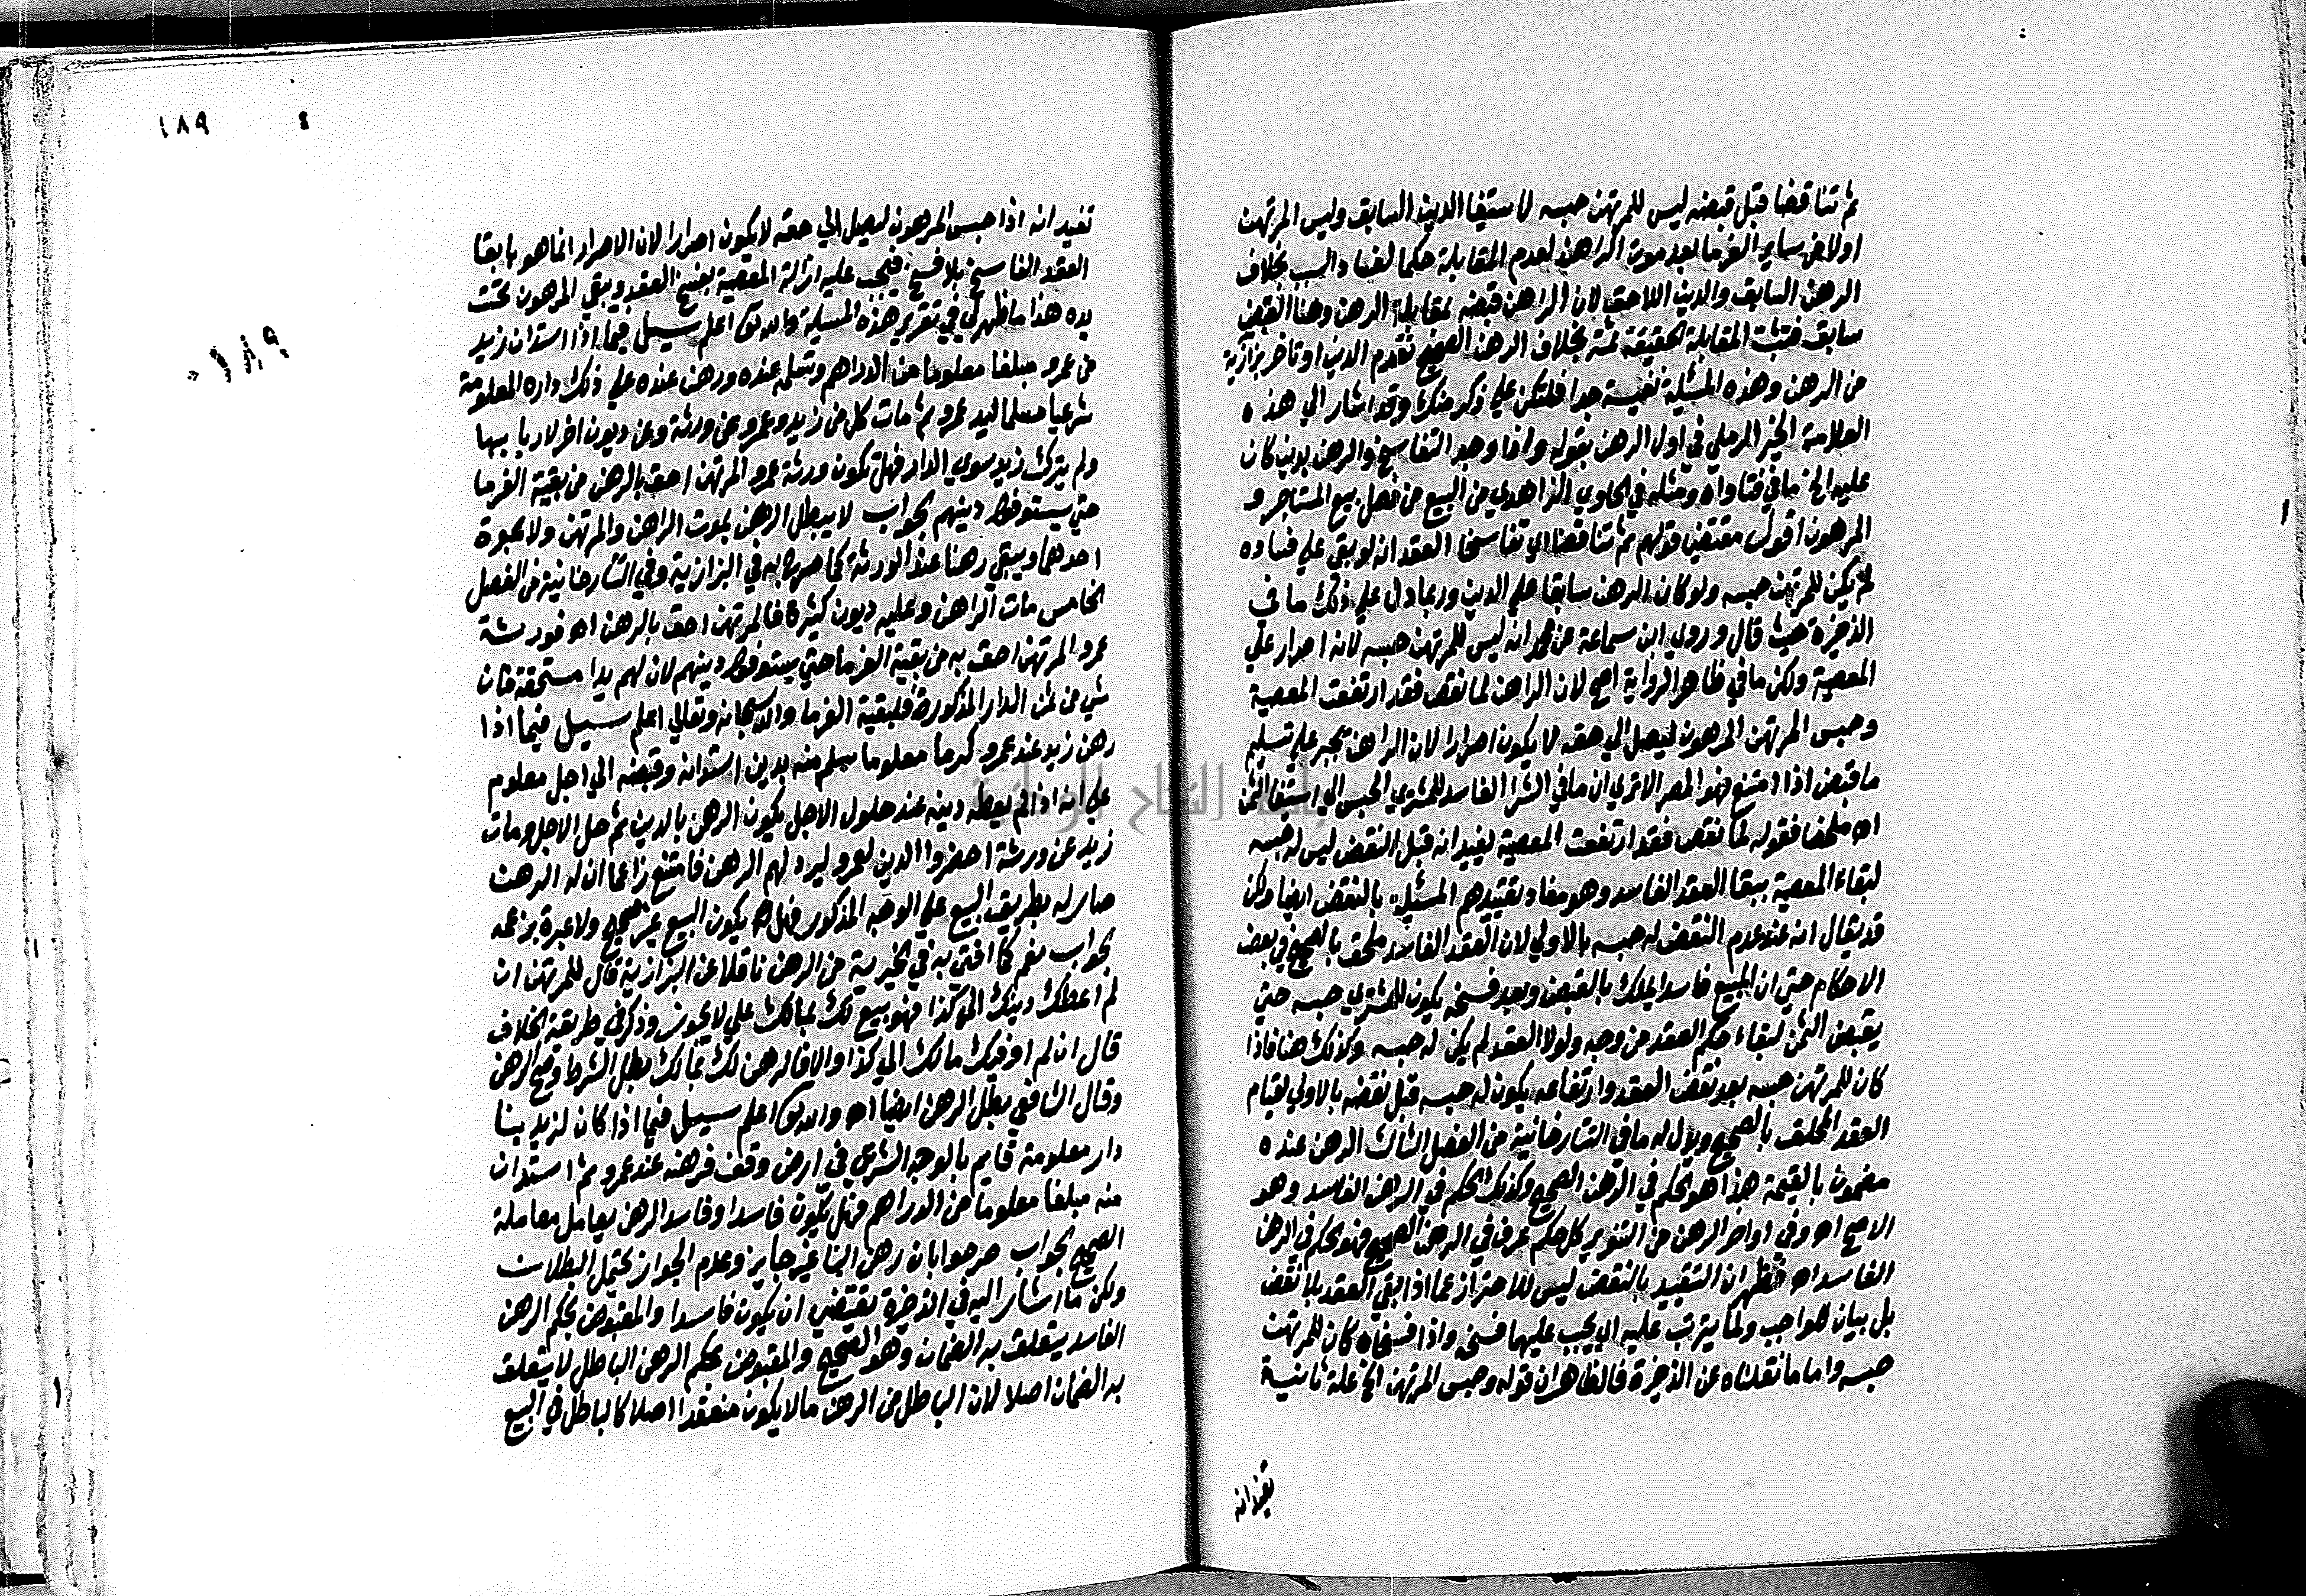 ثم تناقضا قبل قبضه ليس للمرتهن حبسه لاستيفا الدين السابق وليس المرتهن
اولا من ساير الغرما بعد موت الراهن لعدم المقابلة حكما لفساد السبب بخلاف
الرهن السابق والدين اللاحق لان الراهن قبضه بمقابلة الرهن وهنا القبض
سابق فتثبت المقابلة الحقيقة ثمة بخلاف الرهن الصحيح تقدم الدين او تاخر بزازية
من الرهن وهذه المسئلة نفيسة جدا فلتكن علي ذكر منك وقد اشار الي هذه
العلامة الخير الرملي في اول الرهن بقوله واذا وجد التفاسخ والرهن بدين كان
عليه الخ ما في فتاواه ومثله في الحاوي الزاهدي من البيع من فصل بيع المستاجر و
المرهون اقول مقتضي قولهم ثم تناقضا اي تفاسخا العقد انه لو بقي علي فساده
لم يكن للمرتهن حبسه ولو كان الرهن سابقا علي الدين وربما دل علي ذلك ما في
الذخيرة حيث قال وروي ابن سماعة عن محمد انه ليس للمرتهن حبسه لانه اصرار علي
المعصية ولكن ما في ظاهر الرواية اصح لان الراهن لما نقض فقد ارتفعت المعصية
وحبس المرتهن المرهون ليصل الي حقه لا يكون اصرارا لان الراهن يجبر علي تسليم
ما قبض اذا امتنع فهو المصر الا تري ان ما في الشرا الفاسد للمشتري الحبس الي استيفا الثمن
اه ملخصا فقوله لما نقض فقد ارتفعت المعصية يفيد انه قبل النقض ليس له حبسه
لبقاء المعصية ببقا العقد الفاسد وهو مفاد تقييدهم المسئلة بالنقض ايضا ولكن
قد يقال انه عند عدم النقض له حبسه بالاولي لان العقد الفاسد ملحق بالصحيح في بعض
الاحكام حتي ان المبيع فاسدا يملك بالقبض وبعد فسخه يكون للمشتري حبسه حتي
يقبض الثمن لبقاء حكم العقد من وجه ولولا العقد لم يكن له حبسه وكذلك هنا فاذا
كان للمرتهن حبسه بعد نقض العقد وارتفاعه يكون له حبسه قبل نقضه بالاولي لقيام
العقد الملحق بالصحيح ويدل له ما في التتارخانية من الفصل الثالث الرهن عنده
مضمون بالقيمة هذا هو الحكم في الرهن الصحيح وكذلك الحكم في الرهن الفاسد وهو
الاصح اه وفي اواخر الرهن من التنوير كل حكم عرف في الرهن الصحيح فهو الحكم في الرهن
الفاسد اه فظهر ان التقييد بالنقض ليس للاحتراز عما اذا بقي العقد بلا نقض
بل بيان للواجب ولما يترتب عليه اي يجب عليهما فسخه واذا فسخاه كان للمرتهن
حبسه واما ما نقلناه عن الذخيرة فالظاهر ان قوله وحبس المرتهن الخ علة ثانية
تفيد انه
١٨٩
١٨٩
تفيد انه اذا حبس المرهون ليصل الي حقه لا يكون اصرارا لان الاصرار انما هو بابقا
العقد الفاسخ بلا فسخ فتجب عليه ازالة المعصية بفسخ العقد ويبقي المرهون تحت
يده هذا ما ظهر لي في تقرير هذه المسئلة والله تعالي اعلم سيل فيما اذا استدان زيد
من عمرو مبلغا معلوما من الدراهم وتسلمه عنده ورهن عنده علي ذلك داره المعلومة
شرعيا مسلما ليد عمرو ثم مات كل من زيد وعمرو عن ورثة وعن ديون اخر لاربابها
ولم يترك زيد سوي الدار فهل تكون ورثة عمرو المرتهن احق بالرهن من بقية الغرما
حتي يستوفوا دينهم الجواب لا يبطل الرهن بموت الراهن والمرتهن ولا بموت
احدهما ويبقي رهنا عند الورثة كما صرح به في البزازية وفي التتارخانية من الفصل
الخامس مات الراهن وعليه ديون كثيرة فالمرتهن احق بالرهن اه فورثة
عمرو المرتهن احق به من بقية الغرما حتي يستوفوا دينهم لان لهم يدا مستحقة فان
شي من ثمن الدار المذكورة فلبقية الغرما والله سبحانه وتعالي اعلم سيل فيما اذا
رهن زيد عند عمرو كرما معلوما سلم منه بدين استدانه وقبضه الي اجل معلوم
علي انه اذا لم يعطه دينه عند حلول الاجل يكون الرهن بالدين ثم حل الاجل ومات
زيد عن ورثة احضروا الدين لعمرو ليرد لهم الرهن فامتنع زاعما ان له الرهن
صار له بطريق البيع علي الوجه المذكور فهل يكون البيع غير صحيح ولا عبرة بزعمه
الجواب نعم كما افتي به في الخيرية من الرهن ناقلا عن البزازية قال للمرتهن ان
لم اعطك دينك الي كذا فهو بيع لك بمالك علي لا يجوز وذكر في طريقة الخلاف
قال ان لم اوفيك مالك الي كذا والا فالرهن لك بمالك بطل الشرط وصح الرهن
وقال الشافعي بطل الرهن ايضا اه والله تعالي اعلم سيل في اذا كان لزيد بنا
دار معلومة قايم بالوجه الشرعي في ارض وقف فرهنه عند عمرو ثم استدان
منه مبلغا معلوما من الدراهم فهل يكون فاسدا وفاسد الرهن يعامل معاملة
الصحيح الجواب صرحوا بان رهن البنا غير جايز وعدم الجواز يحتمل البطلان
ولكن ما اشار اليه في الذخيرة يقتضي ان يكون فاسدا والمقبوض بحكم الرهن
الفاسد يتعلق به الضمان وهو الصحيح والمقبوض بحكم الرهن الباطل لا يتعلق
به الضمان اصلا لان الباطل من الرهن ما لا يكون منعقدا اصلا كالباطل في البيع